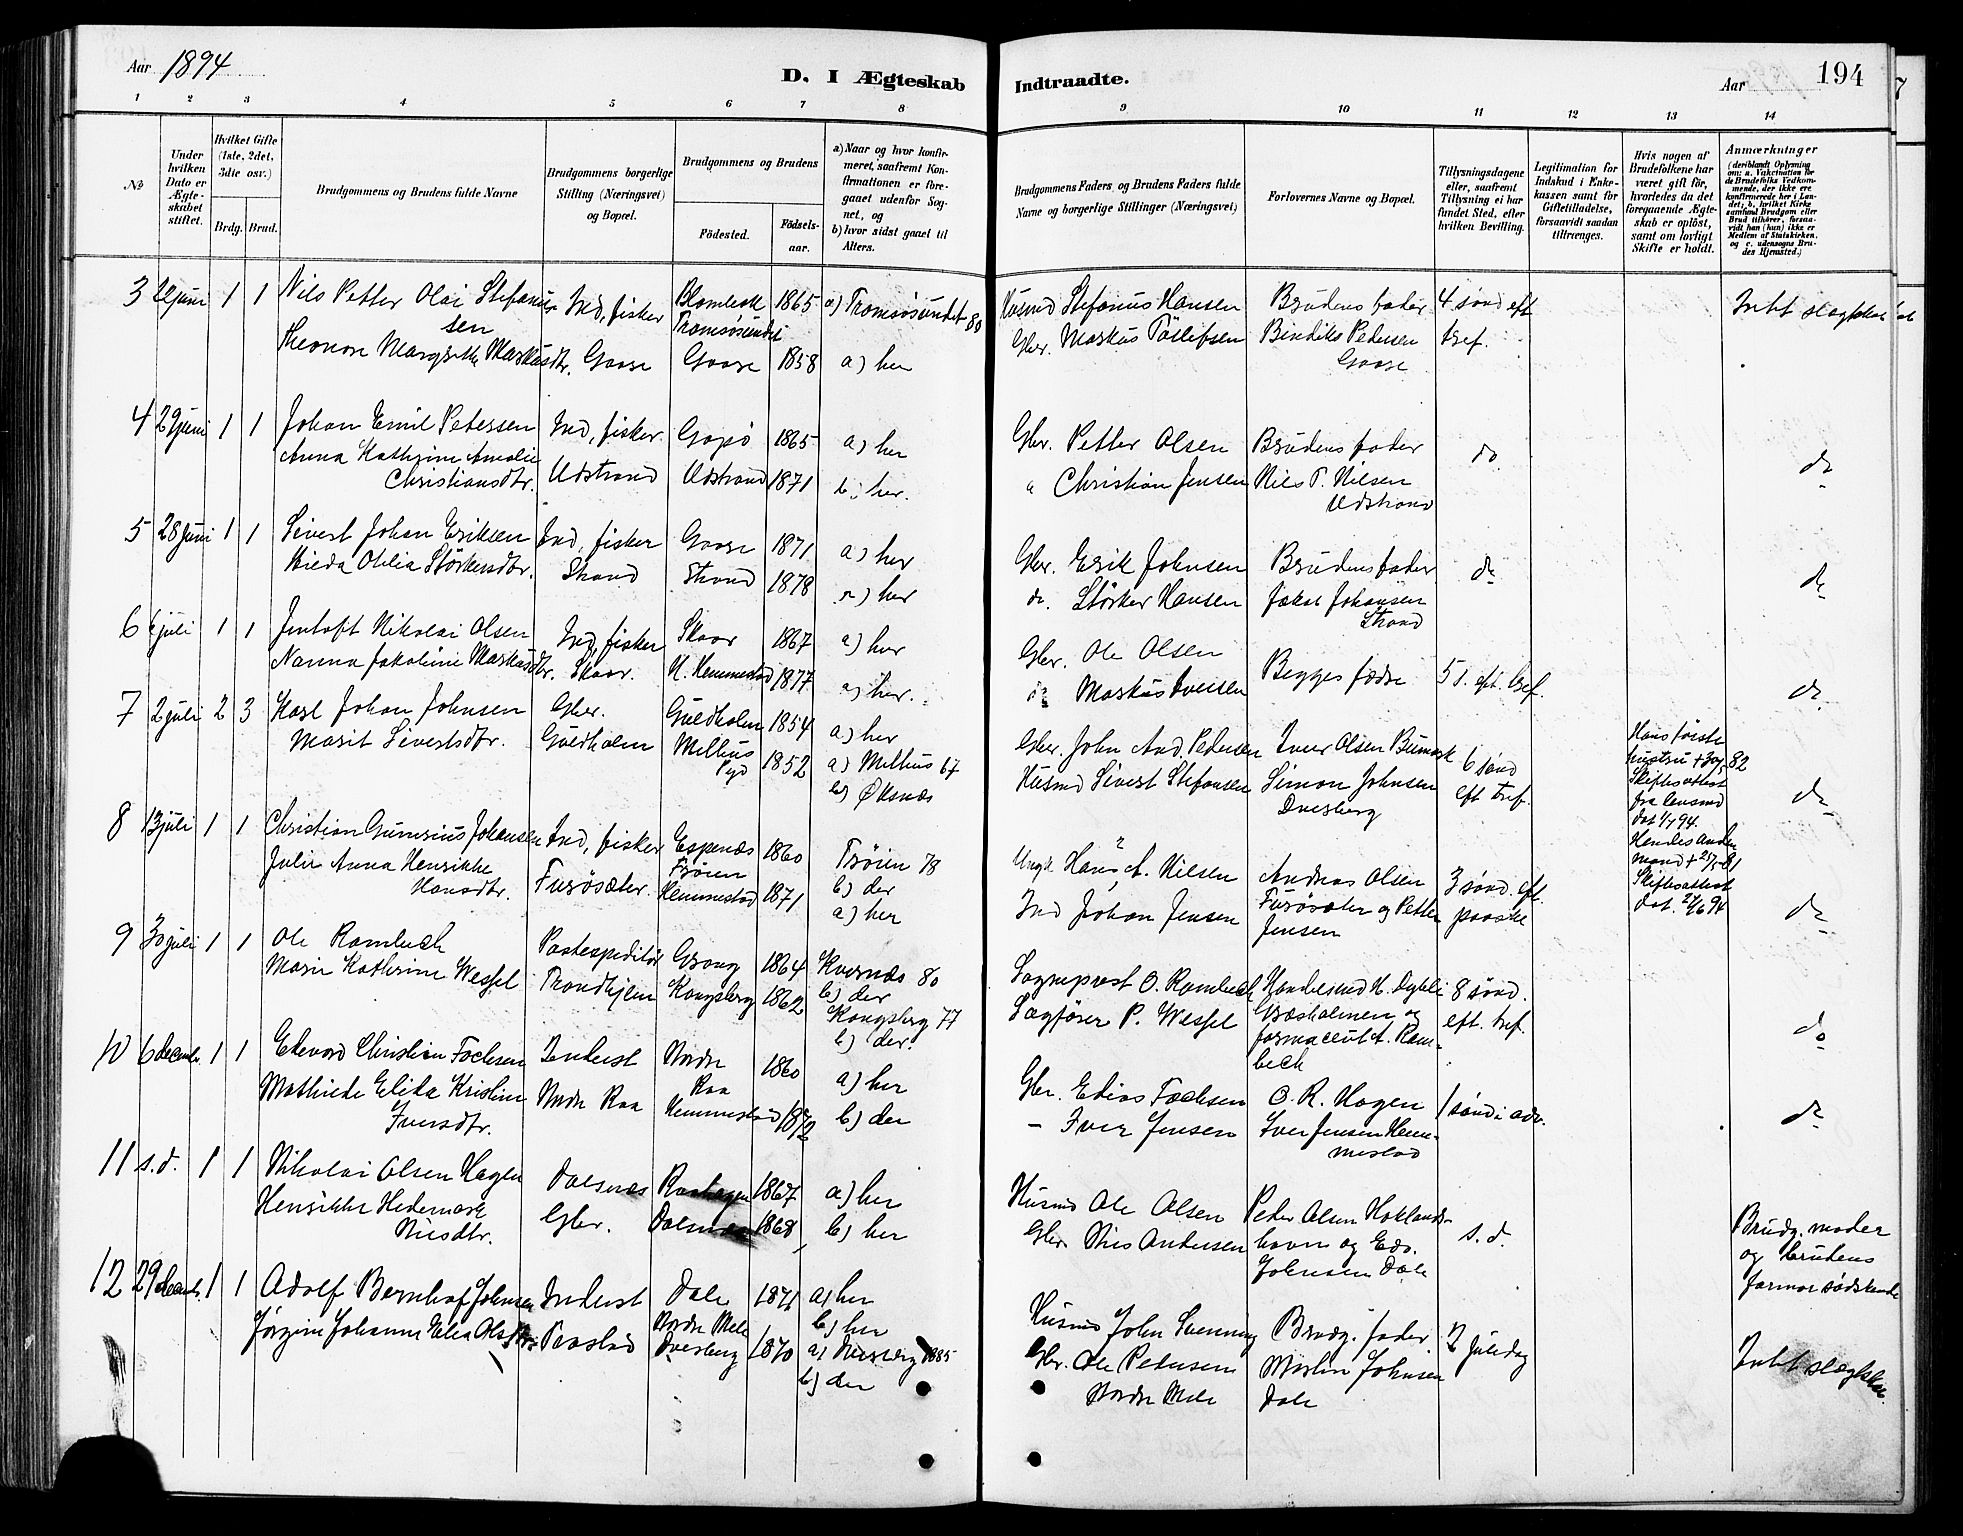 Aar 1894
D. I Ægteskab
Indtraadte.
Aar 194
1 2 3 4 5 6 7 8
9 10 11 12 13 14
№
Under hvilken Dato er Ægteskabet stiftet.
Hvilket Gifte (1ste, 2det, 3die osv.)
Brdg. Brud.
Brudgommens og Brudens fulde Navne
Brudgommens borgerlige Stilling (Næringsvei) og Bopæl.
Brudgommens og Brudens
Fødested.
Fødsels-aar.
a) Naar og hvor konfirmeret, saafremt Konfirmationen er foregaaet udenfor Sognet, og
b) hvor sidst gaaet til Alters.
Brudgommens Faders og Brudens Faders fulde Navne og borgerlige Stillinger (Næringsvei)
Forlovernes Navne og Bopæl.
Tillysningsdagene eller, saafremt Tillysning ei har fundet Sted, efter hvilken Bevilling.
Legitimation for Indskud i Enkekassen samt for Giftetilladelse, forsaavidt saadan tiltrænges.
Hvis nogen af Brudefolkene har været gift før, hvorledes da det foregaaende Ægteskab er opløst, samt om lovligt Skifte er holdt.
Anmærkninger (deriblandt Oplysning om: a. Vakcination for de Brudefolks Vedkommende, der ikke ere konfirmerede her i Landet; b. hvilket Kirkesamfund Brudgom eller Brud tilhører, forsaavidt han (hun) ikke er Medlem af Statskirken, og c. udensogns Brudes Hjemsted.)
3 juni 1 1 Nils Petter Olai Stefanussen Ind, fisker 1865 a) Tromsøsundet 80
Husmd Stefanus Hansen Brudens fader 4 sønd eft Intet slægtskab
Tromsøsundet
Markusdtr. Gaare Gaare 1858 a) her
Gbr. Markus Tollefsen Bendiks Pedersen tref.
Gaare
4 29 juni 1 1 Johan Emil Petersen Ind, fisker. Gapø 1865 a) her
Gbr. Petter Olsen Brudens fader do do
Anna Kathrine Amalie Christiansdtr. Udstrand Udstrand 1871 b) her.
Christian Jensen Nils P. Nilsen
Udstrand
5 28 juni 1 1 Sivert Johan Eriksen Ind, fisker Gaare 1871 a) her
Gbr. Erik Johnsen Brudens fader do do
Størkersdtr. Strand Strand 1878 a) her
do. Størker Hansen Jakob Johansen
Strand
6 juli 1 1 Jentoft Nikolai Olsen Ind, fisker Skaar 1867 a) her
Gbr. Ole Olsen Begges fædre 5 s. eft. tref. do
Nanna Jakobine Markusdtr. Skaar. N. Hemmestad 1877 a) her.
do Markus Iversen
7 2 juli 2 3 Karl Johan Johnsen Gbr. Guldholm 1854 a) her
Gbr. John And. Pedersen Iver Olsen 6 sønd
Marit Sivertsdtr. Guldholm Melhus 1852 a) Melhus 67
Husmd Sivert Stefansen Simon Johnsen eft tref. do
b) Øksnes
Dverberg
Hans første
hustru + 82
Skifteattest
fra lensmd
dat 94.
Hendes anden
mand + 81
Skifteattest
dat. 94
8 13 juli 1 1 Christian Johansen Ind, fisker Espenes 1860 Trøien 78
Ungk Hans A. Nilsen Andreas Olsen 3 sønd. eft.
Julie Anna Henrikke Hansdtr. Furøsæter. Hemmestad 1871 b) der
a) her
Ind Johan Jensen Furøsæter og Petter Jensen paaske do
9 30 juli 1 1 Ole Rambech Postexpeditør Grong 1864 Kvernæs 80
Sogneprest O. Rambech Handelsmd H. 8 sønd.
Marie Kathrine Wessel Trondhjem Kongsberg 1862 b) der
Kongsberg 77
b) der.
Sagfører P. Wessel Græsholmen og eft. tref. do
farmaceut A. Rambech
10 6 decembr. 1 1 Edvard Christian Fochsen Inderst Nordre 1860 a) her
Gbr. Edias Fochsen O. R. Hagen 1 sønd i adv.
Mathilde Elida Kristine Iversdtr. Nordre Raa Raa
Hemmestad 1872 b) der
– Iver Jensen Iver Jensen Hemmestad do
11 s.d. 1 1 Nikolai Olsen Hagen Dalsnæs 1867 a) her
Husmd Ole Olsen Peder Olsen Haklands- s.d. Brudg. moder
Henrikke Hedemark Nilsdtr. Gbr. 1868 b) her
Gbr Nils Andersen havn og Edv. og brudens
Johnsen Dale farmor sødskende
12 29 decembr. 1 1 Adolf Bernhof Johnsen Inderst Dale 1871 a) her
b) her
Husmd John Brudg. fader 2 juledag
Jørgine Johanne Olsdtr Nordre Mele
Dverberg 1870 a) Dverberg 1885
b) der
Gbr. Ole Pedersen Martin Johnsen Intet slægtskab.
Nordre Mele Dale